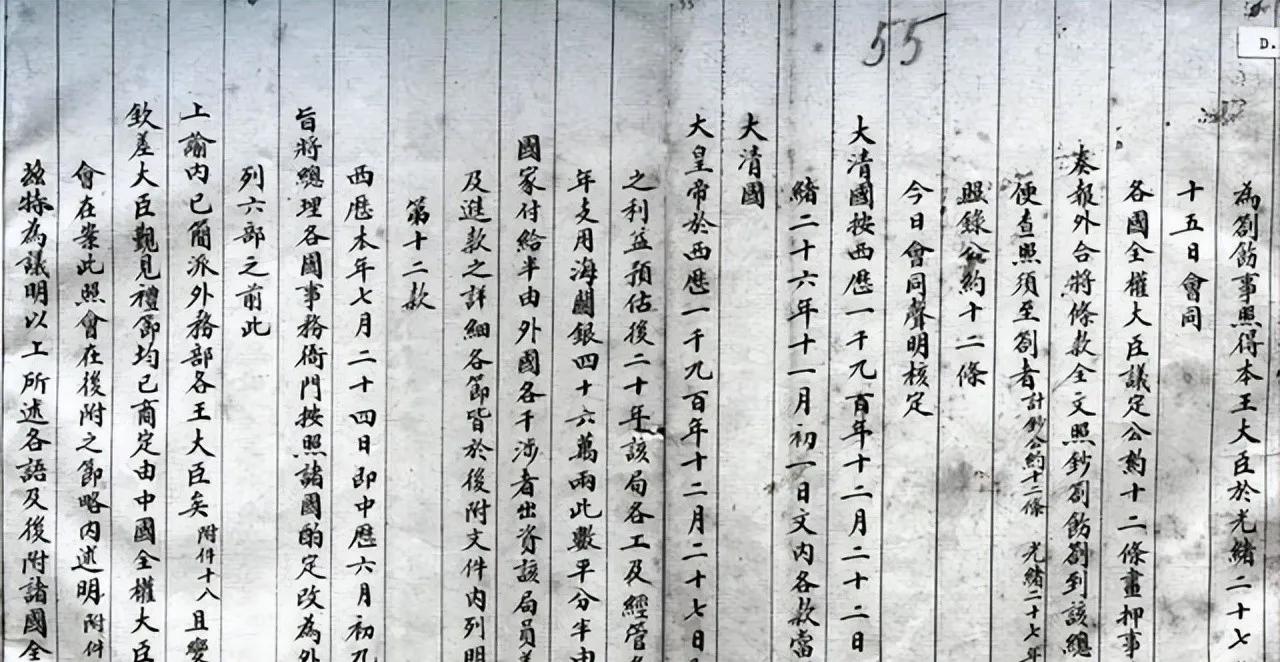 55
D.
為劄飭事照得本王大臣於光緒二十七
十五日會同
各國全權大臣議定公約十二條畫押事
奏報外合將條款全文照鈔劄飭劄到該總
便查照須至劄者計鈔公約十二條 光緒二十七年
照錄公約十二條
今日會同聲明核定
大清國按西歷一千九百年十二月二十二日
緒二十六年十一月初一日文內各款當
大清國
大皇帝於西歷一千九百年十二月二十七日
之利益預估後二十年該局各工及經營各
年支用海關銀四十六萬兩此數平分半由
國家付給半由外國各干涉者出資該局員差
及進款之詳細各節皆於後附文件內列明
第十二款
西歷本年七月二十四日即中歷六月初九
旨將總理各國事務衙門按照諸國酌定改為外
列六部之前此
上諭內已簡派外務部各王大臣矣附件十八且變
欽差大臣覲見禮節均已商定由中國全權大臣
會在案此照會在後附之節略內述明附件
茲特為議明以上所述各語及後附諸國全